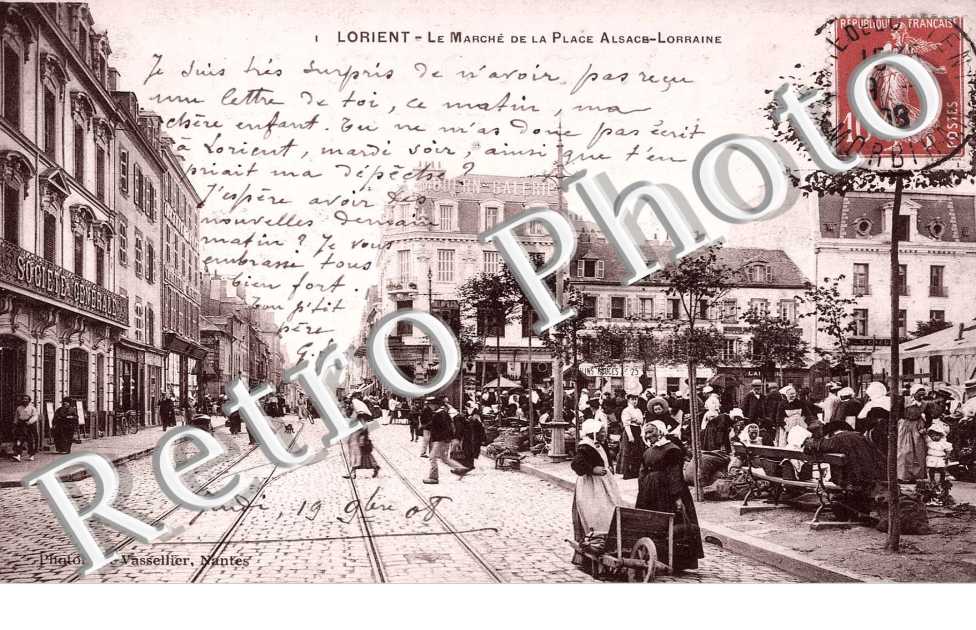 1 LORIENT - LE MARCHÉ DE LA PLACE ALSACE-LORRAINE
RÉPUBLIQUE FRANÇAISE
10
POSTES
MORBIHAN
Je suis très surpris de n'avoir pas reçu
une lettre de toi, ce matin, ma
chère enfant. Tu ne m'as donc pas écrit
à Lorient, mardi soir, ainsi que t'en
priait ma dépêche ?
J'espère avoir de
nouvelles demain
matin ? Je vous
embrasse tous
bien fort.
Ton p'tit
père
SOCIÉTÉ GÉNÉRALE
Retro Photo
Jeudi, 19 9bre 08
Vassellier, Nantes